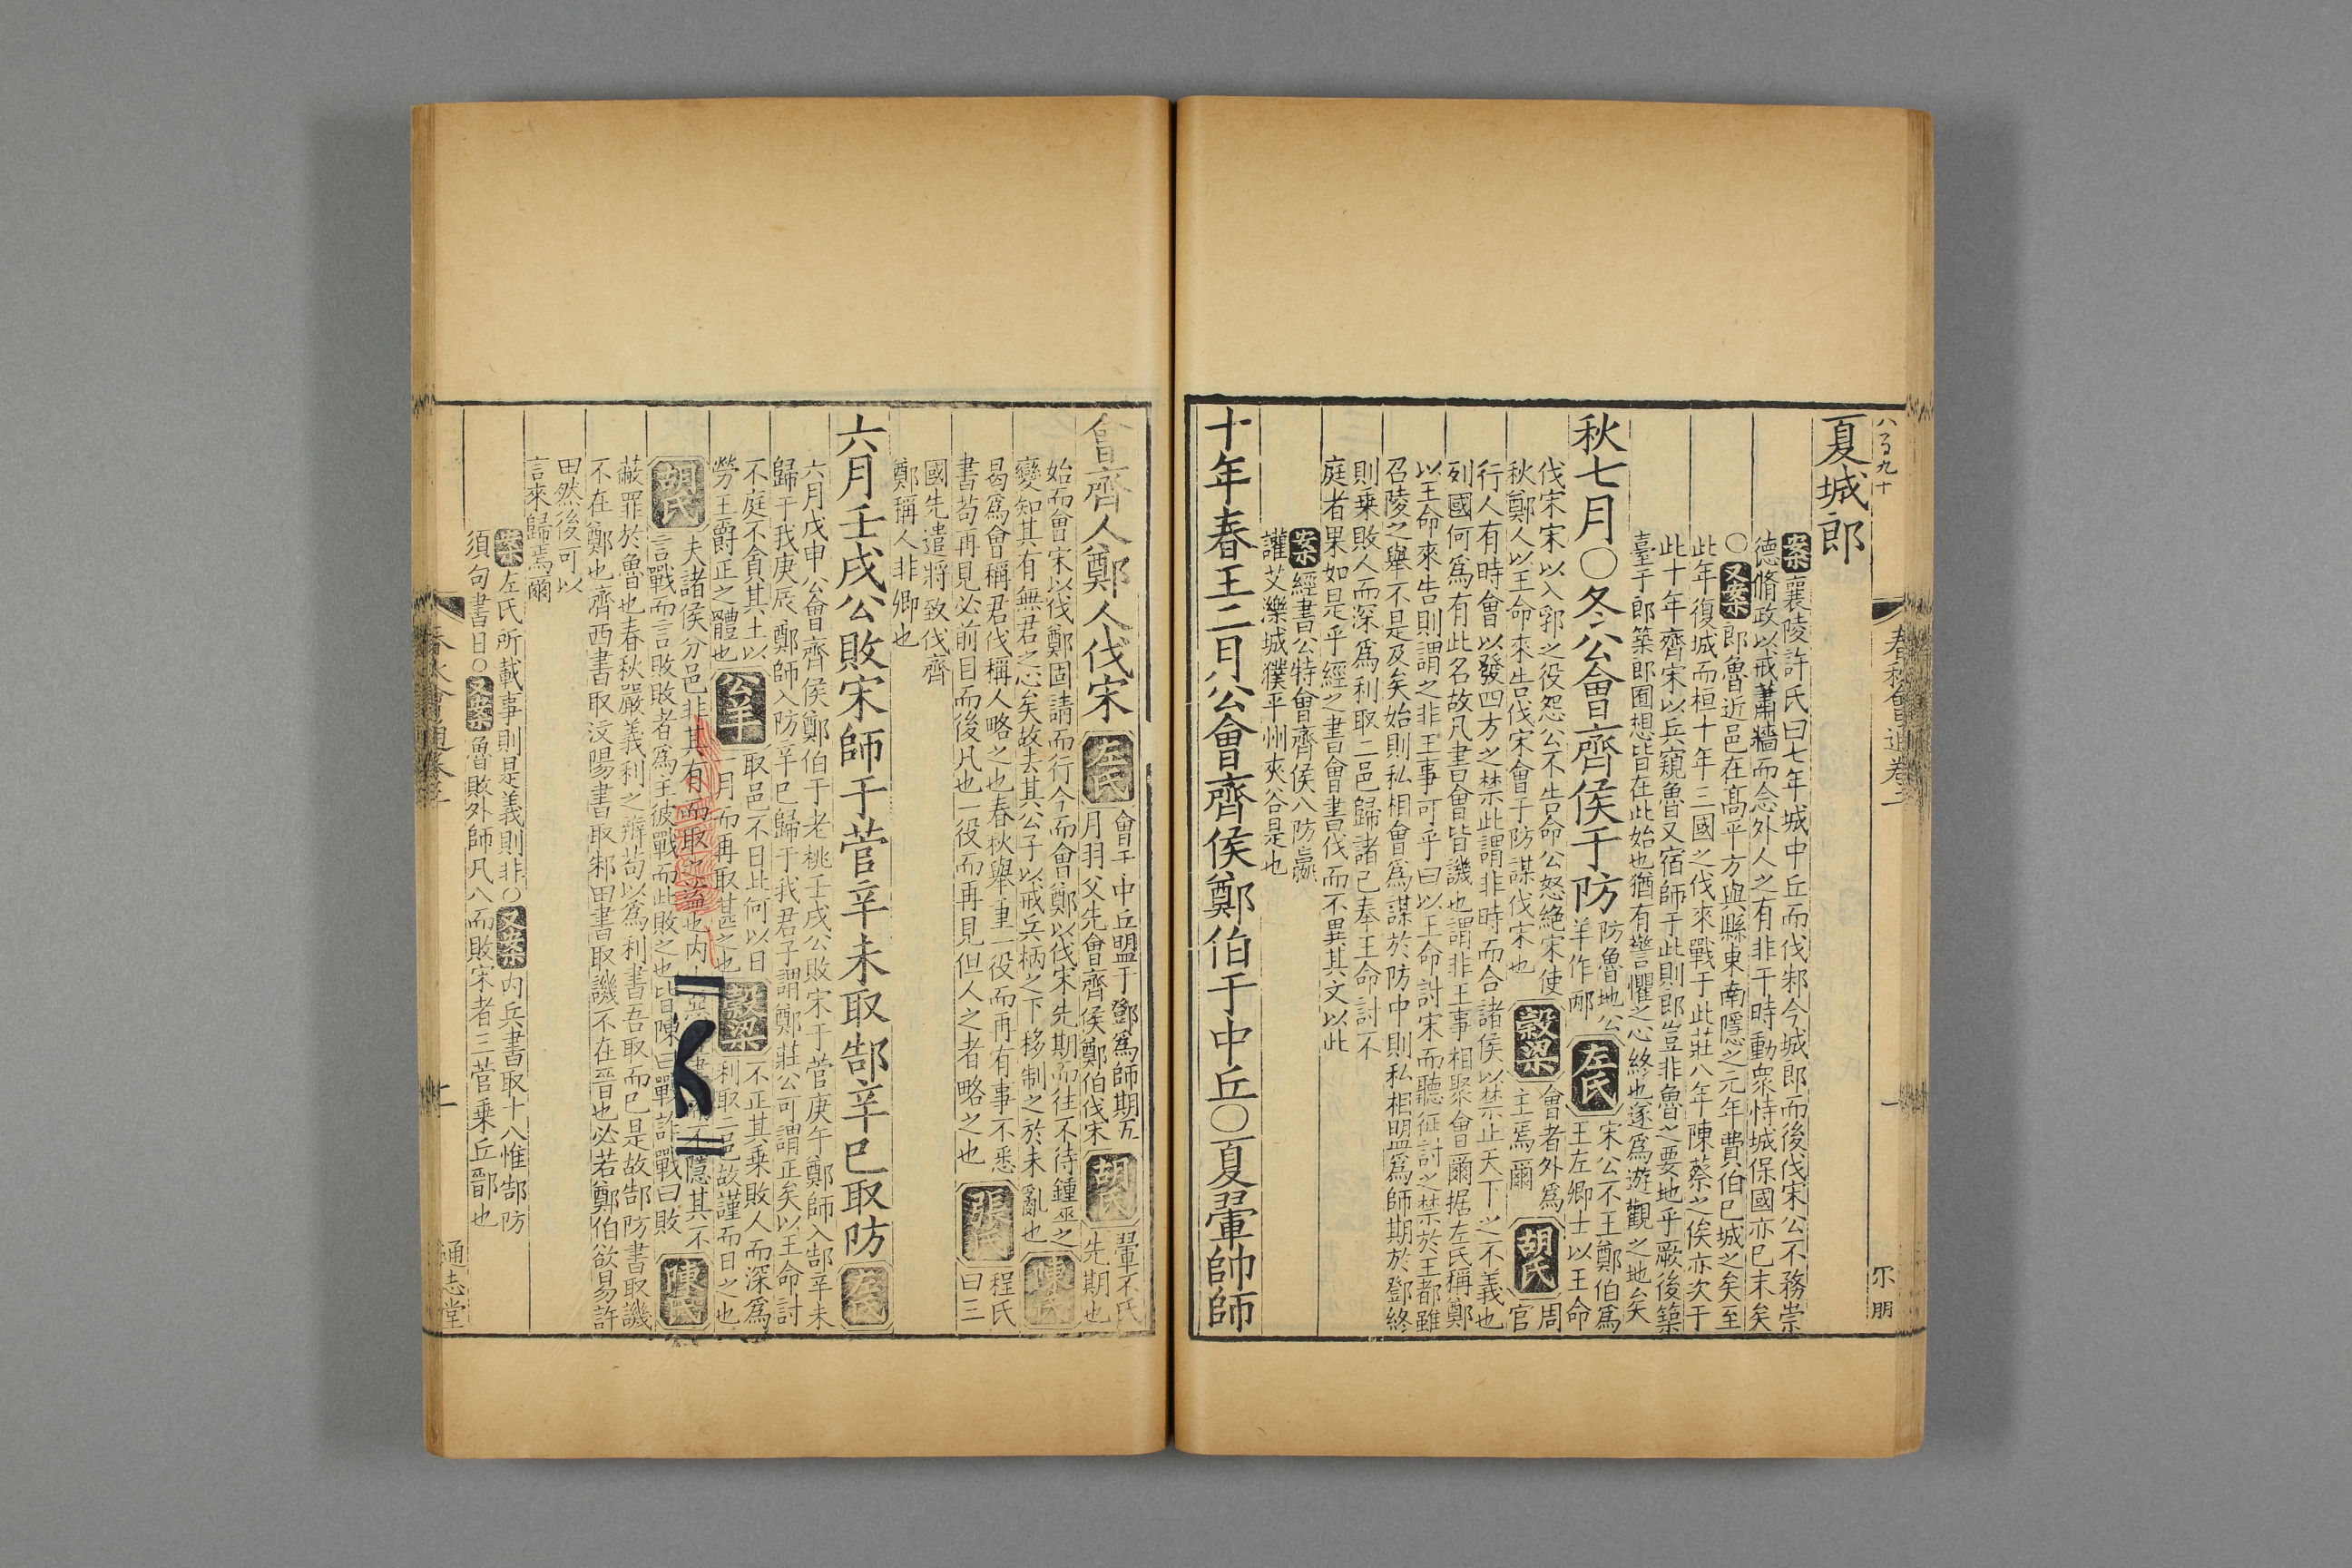 夏城郎
案襄陵許氏曰七年城中丘而伐邾今城郎而後伐宋公不務崇
德脩政以戒蕭牆而念外人之有非干時動衆恃城保國亦已末矣
○又案郎魯近邑在髙平方與縣東南隱之元年費伯已城之矣至
此年復城而桓十年三國之伐來戰于此莊八年陳蔡之俟亦次于
此十年齊宋以兵窺魯又宿師于此則郎豈非魯之要地乎厥後築
臺于郎築郎囿想皆在此始也猶有警懼之心終也遂爲遊觀之地矣
秋七月○冬公會齊侯于防
防魯地公
羊作邴
左氏
宋公不王鄭伯爲
王左卿士以王命
伐宋宋以入郛之役怨公不告命公怒絶宋使
秋鄭人以王命來告伐宋會于防謀伐宋也
穀梁
會者外爲
主焉爾
胡氏
周
官
行人有時會以發四方之禁此謂非時而合諸侯以禁止天下之不義也
列國何爲有此名故凡書會皆譏也謂非王事相聚會爾据左氏稱鄭
以王命來告則謂之非王事可乎曰以王命討宋而聽征討之禁於王都雖
召陵之舉不是及矣始則私相會爲謀於防中則私相盟爲師期於鄧終
則乗敗人而深爲利取二邑歸諸已奉王命討不
庭者果如是乎經之書會書伐而不異其文以此
案經書公特會齊侯八防嬴
讙艾濼城濮平州夾谷是也
十年春王二月公會齊侯鄭伯于中丘○夏翬帥師
春秋會通卷二
會齊人鄭人伐宋
左氏
會于中丘盟于鄧爲師期五
月羽父先會齊侯鄭伯伐宋
胡氏
翬不氏
先期也
始而會宋以伐鄭固請而行今而會鄭以伐宋先期而往不待鍾巫之
變知其有無君之心矣故去其公子以戒兵柄之下移制之於未亂也
陳氏
曷爲會稱君伐稱人略之也春秋舉重一役而再有事不悉
書苟再見必前目而後凡也一役而再見但人之者略之也
張氏
程氏
曰三
國先遣將致伐齊
鄭稱人非卿也
六月壬戌公敗宋師于菅辛未取郜辛巳取防
左氏
六月戊申公會齊侯鄭伯于老桃壬戌公敗宋于菅庚午鄭師入郜辛未
歸于我庚辰鄭師入防辛巳歸于我君子謂鄭莊公可謂正矣以王命討
不庭不貪其土以
勞王爵正之體也
公羊
取邑不日此何以日
一月而再取甚之也
穀梁
不正其乗敗人而深爲
利取二邑故謹而日之也
胡氏
夫諸侯分邑非其有而取之盗也内
隱其不
言戰而言敗敗者爲主彼戰而此敗之也
陳氏
皆陳曰戰詐戰曰敗
蔽罪於魯也春秋嚴義利之辨苟以爲利書吾取而已是故郜防書取譏
不在鄭也齊西書取汶陽書取邾田書取譏不在晉也必若鄭伯欲易許
田然後可以
言來歸焉爾
案左氏所載事則是義則非○又案内兵書取十八惟郜防
須句書日○又案魯敗外師凡八而敗宋者三菅乗丘鄑也
通志堂